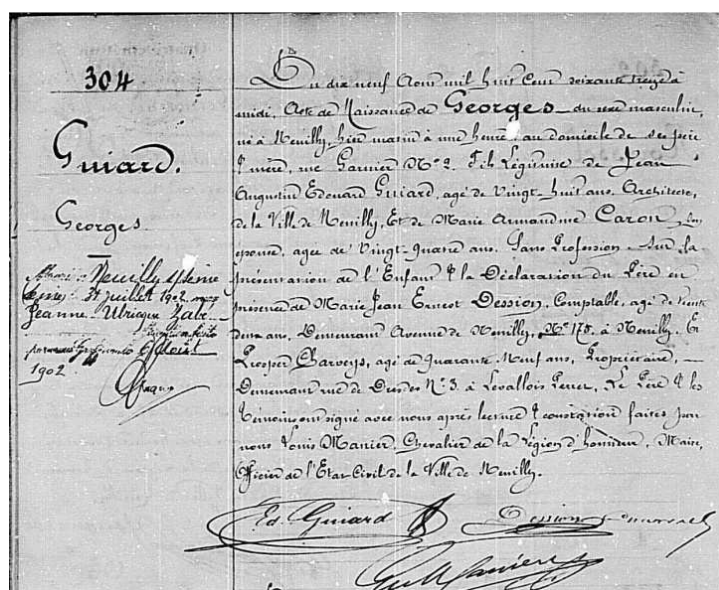 304
Guiard.
Georges
Marié à Neuilly s/Seine
31 juillet 1902 avec
Jeanne Ulrique
août
1902
Du dix neuf Août mil huit cent soixante treize à
midi. Acte de Naissance de Georges du sexe masculin,
né à Neuilly, hier matin à une heure, au domicile de ses père
& mère, rue Garnier No 2. Fils légitime de Jean
Augustin Edouard Guiard, agé de Vingt-huit ans, Architecte,
de la Ville de Neuilly, Et de Marie Armandine Caron, son
épouse, agée de Vingt-quatre ans, Sans Profession. Sur la
présentation de l'Enfant & la Déclaration du Père en
présence de Marie Jean Ernest Dession, Comptable, agé de trente
deux ans, Demeurant Avenue de Neuilly, No 178, à Neuilly. Et
Prosper agé de Quarante Neuf ans, Propriétaire,
Demeurant rue de No 3, à Levallois Perret. Le Père & les
témoins ont signé avec nous après lecture & constatation faites par
nous Louis Manier, Chevalier de la Légion d'honneur, Maire,
Officier de l'Etat Civil de la Ville de Neuilly.
Ed. Guiard
Dession